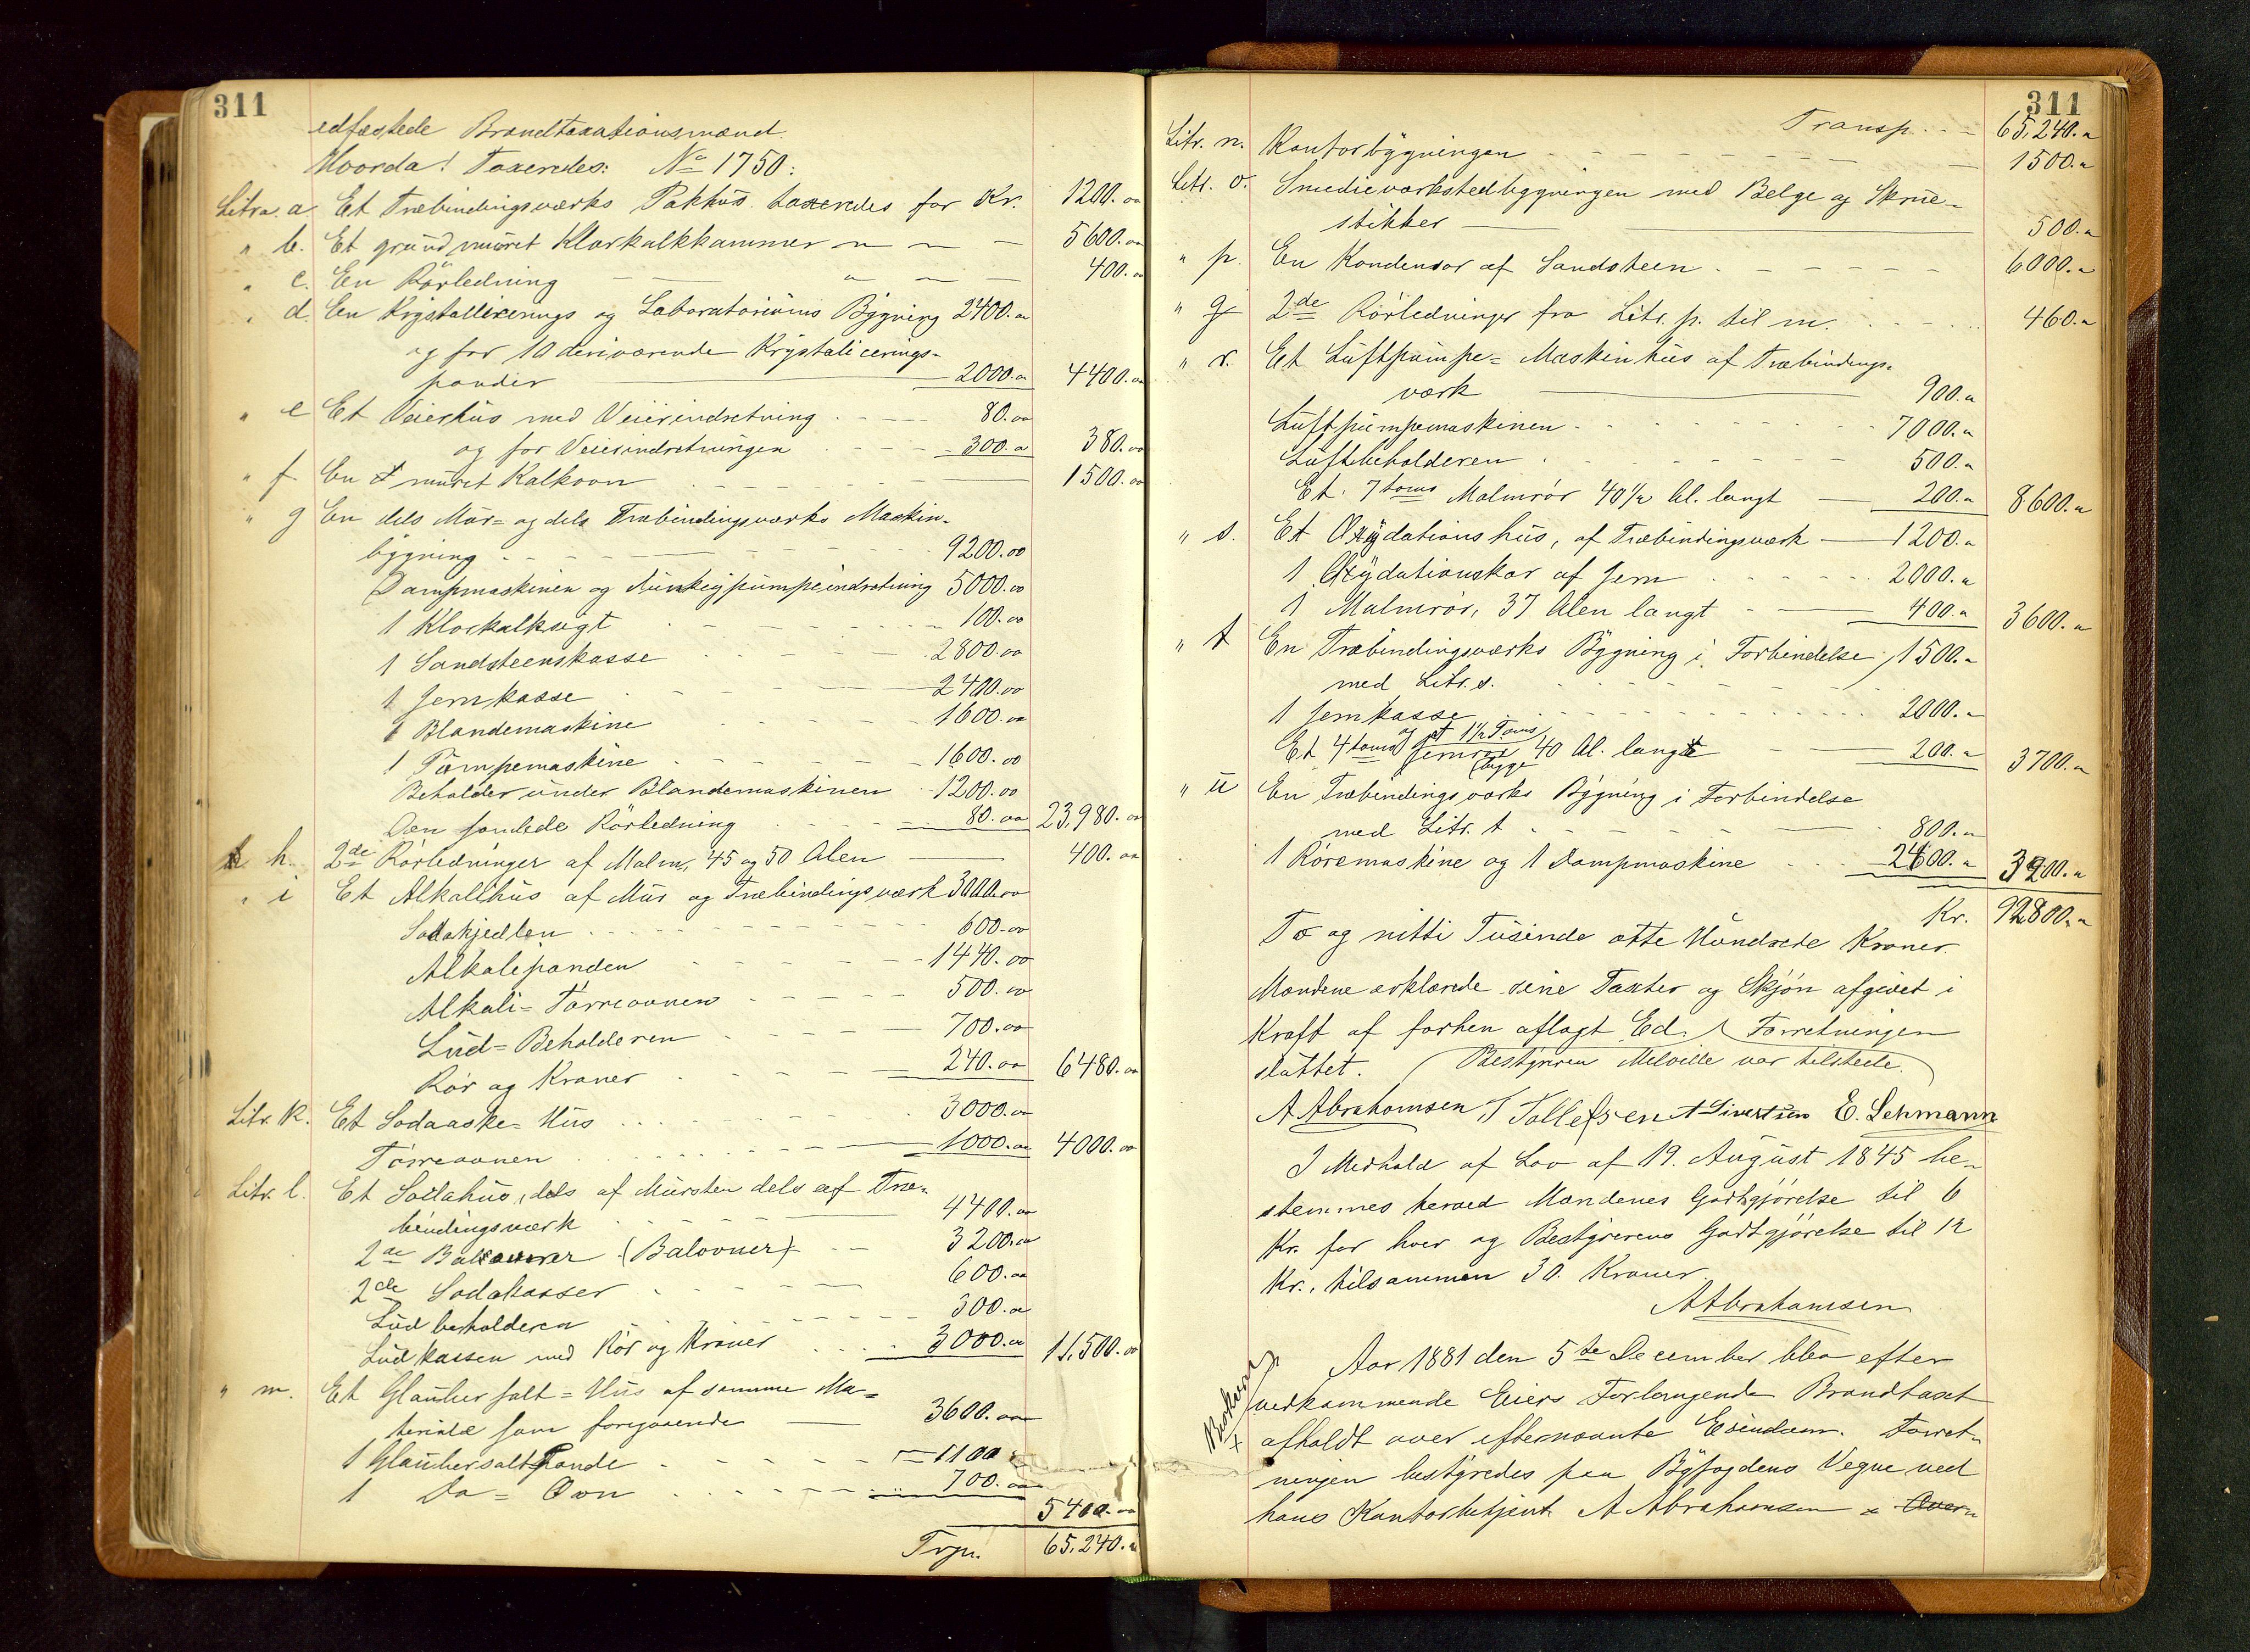 311
edfæstede Brandtaxationsmænd.
Hvorda! Taxeredes: No 1750:
Litra. a Et Træbindingsværks Pakhus taxeredes for Kr. 1200.00
" b. Et grundmuret Klorkalkkammer " " — 5600.00
" c. En Rörledning — " — — 400.00
" d. En Krystalliserings og Laboratoriums Bygning 2400.00
og for 10 derværende Krystalicerings-
pander — 2000.00 4400.00
" e Et Veierhus med Veierindretning - - - 80.00
og for Veierindretningen - - - 300.00 380.00
" f. En muret Kalkovn — 1500.00
" g En dels Mur= og dels Træbindingsværks Maskin-
bygning - - - 9200.00
Dampmaskinen og Pumpeindretning 5000.00
1 Klorkalksigt - - - 100.00
1 Sandsteenskasse - - - 2800.00
1 Jernkasse - - - 2400.00
1 Blandemaskine - - - 1600.00
1 Pumpemaskine - - - 1600.00
Beholder under Blandemaskinen - 1200.00
Den samlede Rörledning - - - 80.00 23,980.00
" h. 2de Rörledninger af Malm, 45 og 50 Alen — 400.00
" i Et Alkalihus af Mur og Træbindingsværk 3000.00
Sodakjedlen - - - 600.00
Alkalipanden - - - 1440.00
Alkali=Tørreovnen - - - 500.00
Lud=Beholderen - - - 700.00
Rör og Kraner - - - 240.00 6480.00
Litr. k. Et Sodaaske=Hus - - - 3000.00
Tørreovnen - - - 1000.00 4000.00
Litr. l. Et Sodahus, dels af Mursten dels af Træ-
bindingsværk — 4400.00
2de (Balovner) - - 3200.00
2de Sodakasser - - - 600.00
Ludbeholderen - - - 300.00
Ludkassen med Rör og Kraner - - - 3000.00 11,500.00
" m. Et Glaubersalt=Hus af samme Ma=
teriale som foregaaende — 3600.00
1 Glaubersaltpande - - - 1100
1 Do = Ovn - - - 700.00
5400.00
Trp. 65,240.00
311
Transp. - - 65,240.00
Litr. n. Kontorbygningen - - - 1500.00
Litr. o. Smedieværkstedbygningen med Belge og Skrue-
stikker — 500.00
" p. En Kondensor af Sandsteen - - - 6000.00
" q 2de Rörledninger fra Litr. p. til m. - - - 460.00
" r. Et Luftpumpe=Maskinhus af Træbindings-
værk — 900.00
Luftpumpemaskinen - - - 7000.00
Luftbeholderen - - - 500.00
Et 7 toms Malmrör 40½ Al. langt — 200.00 8600.00
" s. Et Oxydationshus, af Træbindingsværk — 1200.00
1 Oxydationskar af Jern - - - 2000.00
1 Malmrör, 37 Alen langt - — 400.00 3600.00
" t En Træbindingsværks Bygning i Forbindelse 1500.00
med Litr. s.
1 Jernkasse - - - 2000.00
og et 1½ Toms
Et 4 toms Jernrör 40 Al. langt - — 200.00 3700.00
(begge
" u En Træbindingsværks Bygning i Forbindelse
med Litr. t - - — 800.00
1 Röremaskine og 1 Dampmaskine - - - 2400.00 3200.00
Kr. 92800.00
To og nitti Tusinde otte Hundrede Kroner.
Mændene erklærede sine Taxter og Skjön afgivet i
Kraft af forhen aflagt Ed. Forretningen
sluttet. (Bestyreren Melville var tilstede.)
A Abrahamsen T Tollefsen A Sivertsen E. Lehmann
I Medhold af Lov af 19. August 1845 be-
stemmes herved Mændenes Godtgjörelse til 6
Kr. for hver og Bestyrerens Godtgjörelse til 12
Kr., tilsammen 30. Kroner.
A Abrahamsen
Aar 1881 den 5te December blev efter
vedkommende Eiers Forlangende Brandtaxt
afholdt over efternævnte Eiendom. Forret-
ningen bestyredes paa Byfogdens Vegne ved
hans Kontorbetjent A Abrahamsen